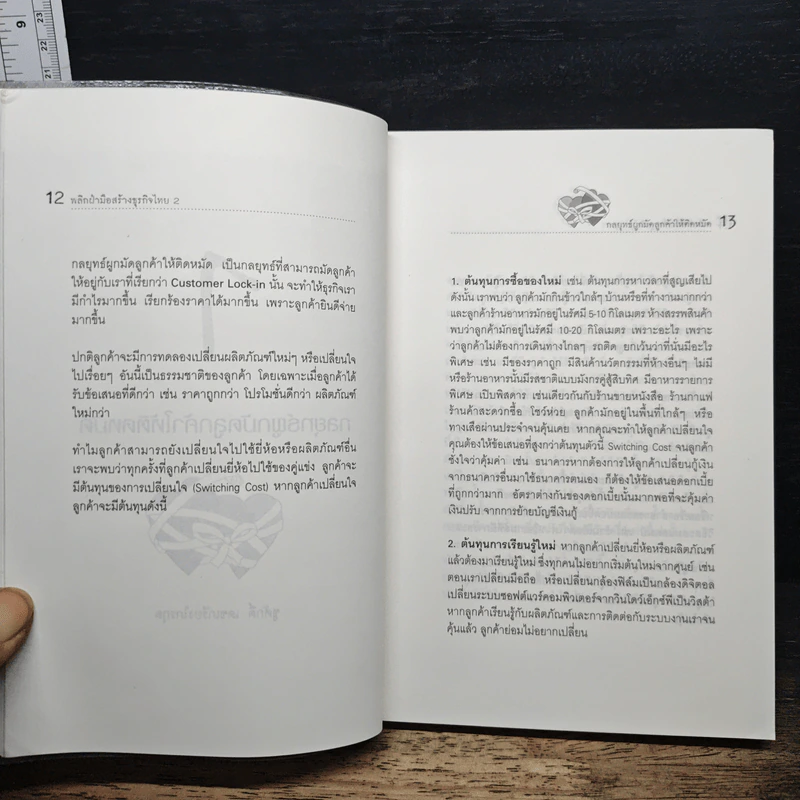 9
23
22
21
12 พลิกฝ่ามือสร้างธุรกิจไทย 2
กลยุทธ์ผูกมัดลูกค้าให้ติดหมัด เป็นกลยุทธ์ที่สามารถมัดลูกค้า
ให้อยู่กับเราที่เรียกว่า Customer Lock-in นั้น จะทำให้ธุรกิจเรา
มีกำไรมากขึ้น เรียกร้องราคาได้มากขึ้น เพราะลูกค้ายินดีจ่าย
มากขึ้น
ปกติลูกค้าจะมีการทดลองเปลี่ยนผลิตภัณฑ์ใหม่ๆ หรือเปลี่ยนใจ
ไปเรื่อยๆ อันนี้เป็นธรรมชาติของลูกค้า โดยเฉพาะเมื่อลูกค้าได้
รับข้อเสนอที่ดีกว่า เช่น ราคาถูกกว่า โปรโมชั่นดีกว่า ผลิตภัณฑ์
ใหม่กว่า
ทำไมลูกค้าสามารถยังเปลี่ยนใจไปใช้ยี่ห้อหรือผลิตภัณฑ์อื่น
เราจะพบว่าทุกครั้งที่ลูกค้าเปลี่ยนยี่ห้อไปใช้ของคู่แข่ง ลูกค้าจะ
มีต้นทุนของการเปลี่ยนใจ (Switching Cost) หากลูกค้าเปลี่ยนใจ
ลูกค้าจะมีต้นทุนดังนี้
กลยุทธ์ผูกมัดลูกค้าให้ติดหมัด 13
1. ต้นทุนการซื้อของใหม่ เช่น ต้นทุนการหาเวลาที่สูญเสียไป
ดังนั้น เราพบว่า ลูกค้ามักกินข้าวใกล้ๆ บ้านหรือที่ทำงานมากกว่า
และลูกค้าร้านอาหารมักอยู่ในรัศมี 5-10 กิโลเมตร ห้างสรรพสินค้า
พบว่าลูกค้ามักอยู่ในรัศมี 10-20 กิโลเมตร เพราะอะไร เพราะ
ว่าลูกค้าไม่ต้องการเดินทางไกลๆ รถติด ยกเว้นว่าที่นั่นมีอะไร
พิเศษ เช่น มีของราคาถูก มีสินค้านวัตกรรมที่ห้างอื่นๆ ไม่มี
หรือร้านอาหารนั้นมีรสชาติแบบมังกรคู่สู้สิบทิศ มีอาหารรายการ
พิเศษ เป็บพิสดาร เช่นเดียวกันกับร้านขายหนังสือ ร้านกาแฟ
ร้านค้าสะดวกซื้อ โชว์ห่วย ลูกค้ามักอยู่ในพื้นที่ใกล้ๆ หรือ
ทางเสือผ่านประจำจนคุ้นเคย หากคุณจะทำให้ลูกค้าเปลี่ยนใจ
คุณต้องให้ข้อเสนอที่สูงกว่าต้นทุนตัวนี้ Switching Cost จนลูกค้า
ชั่งใจว่าคุ้มค่า เช่น ธนาคารหากต้องการให้ลูกค้าเปลี่ยนกู้เงิน
จากธนาคารอื่นมาใช้ธนาคารตนเอง ก็ต้องให้ข้อเสนอดอกเบี้ย
ที่ถูกกว่ามาก อัตราต่างกันของดอกเบี้ยนั้นมากพอที่จะคุ้มค่า
เงินปรับ จากการย้ายบัญชีเงินกู้
2. ต้นทุนการเรียนรู้ใหม่ หากลูกค้าเปลี่ยนยี่ห้อหรือผลิตภัณฑ์
แล้วต้องมาเรียนรู้ใหม่ ซึ่งทุกคนไม่อยากเริ่มต้นใหม่จากศูนย์ เช่น
ตอนเราเปลี่ยนมือถือ หรือเปลี่ยนกล้องฟิล์มเป็นกล้องดิจิตอล
เปลี่ยนระบบซอฟต์แวร์คอมพิวเตอร์จากวินโดว์เอ็กซ์พีเป็นวิสต้า
หากลูกค้าเรียนรู้กับผลิตภัณฑ์และการติดต่อกับระบบงานเราจน
คุ้นแล้ว ลูกค้าย่อมไม่อยากเปลี่ยน